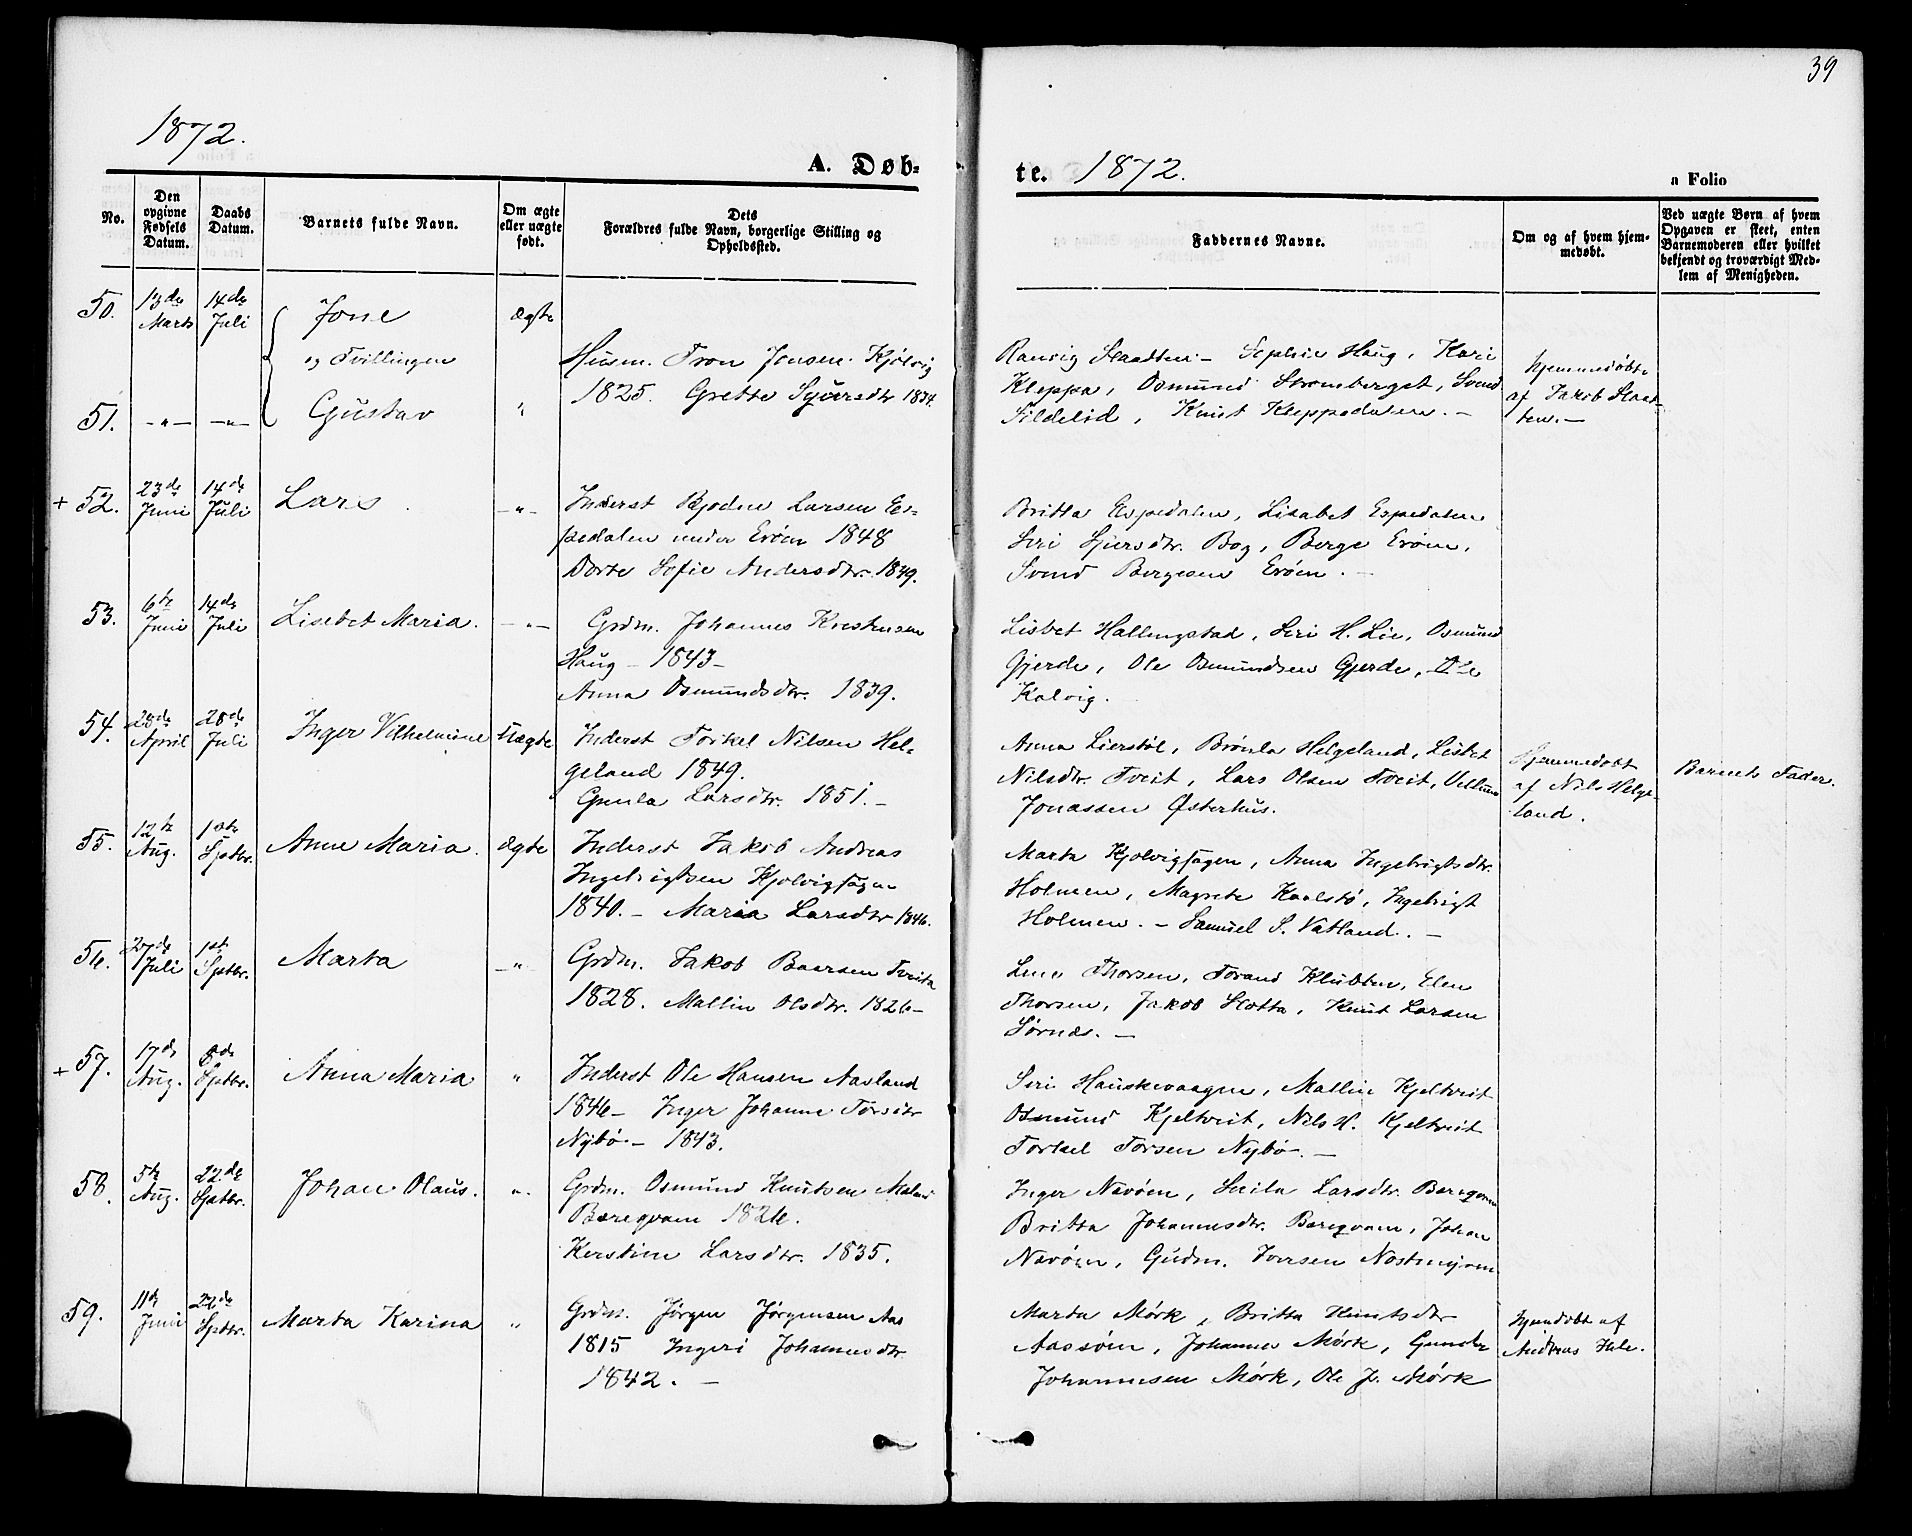 39
1872.
A. Døb-
te. 1872.
a Folio
No.
Den opgivne Fødsels Datum.
Daabs Datum.
Barnets fulde Navn.
Om ægte eller uægte født.
Dets Forældres fulde Navn, borgerlige Stilling og Opholdssted.
Faddernes Navne.
Om og af hvem hjemmedøbt.
Ved uægte Børn af hvem Opgaven er skeet, enten Barnemoderen eller hvilket bekjendt og troværdigt Medlem af Menigheden.
50. 13de Marts 14de Juli Jone ægte
og Tvillingen
51. -"- -"- Gustav "
Husm. Tron Jensen Kjølvig
1825. Grette Syversdtr 1834.
Ranvig Staadten - Sophie Haug, Kari
Kleppa, Osmund Stromberget, Svend
Sildelid, Knut Kleppedalen. -
hjemmedøbt
af Jakob Staad-
ten. -
+ 52. 23de Juni 14de Juli Lars -"-
Inderst Bjodne Larsen Es-
pedalen under Erøen 1848
Dorte Sofie Andersdtr. 1849.
Britta Espedalen, Lisabet Espedalen
Siri Sjursdtr. Bog, Berge Erøen,
Svend Bergesen Erøen. -
53. 6te Juni 14de Juli Lisebet Maria. -"-
Grdm. Johannes Kristensen
Haug - 1843 -
Anna Osmundsdtr. 1839.
Lisbet Hallingstad, Siri H. Lie, Osmund
Gjerde, Ole Osmundsen Gjerde, Ole
Kalvig.
54. 28de April 28de Juli Inger Vilhelmine Uægte
Inderst Torkel Nilsen Hel-
geland 1849.
Gunla Larsdtr. 1851. -
Anna Lierstøl, Brønla Helgeland, Lisbet
Nilsdtr. Tveit, Lars Olsen Tveit, Vellum
Jonassen Østerhus.
Hjemmedøbt
af Nils Helge-
land.
Barnets Fader.
55. 12te Aug. 1ste Septbr. Anne Maria. ægte
Inderst Jakob Andreas
Ingebrigtsen Kjolvigsagen
1840. - Maria Larsdtr 1846.
Marta Kjolvigsagen, Anna Ingebrigtsdtr.
Holmen, Magrete Karlstø, Ingebrigt
Holmen. - Samuel S. Vatland. -
56. 27de Juli 1ste Septbr. Marta -"-
Grdm. Jakob Baarsen Tveita
1828. Mallin Olsdtr. 1826 -
Lena Thorsen, Torand Klubben, Elen
Thorsen, Jakob Slotta, Knut Larsen
Sørnes. -
+ 57. 17de Aug. 8de Septbr. Anna Maria "
Inderst Ole Hansen Aasland
1846 - Inger Johanne Torsdtr
Nybø. - 1843.
Siri Hauskevaagen, Mallin Kjeltveit
Osmund Kjeltveit, Nils H. Kjeltveit
Torkel Torsen Nybø. -
58. 5te Aug. 22de Septbr. Johan Olaus. "
Grdm. Osmund Knutsen
Bæreqvam 1826.
Kerstine Larsdtr. 1835.
Inger Navøen, Larsdtr. Bæreqvam
Britta Johannesdtr. Bæreqvam, Johan
Navøen, Gudm. Iversen
59. 11te Juni 22de Septbr. Marta Karina "
Grdm. Jørgen Jørgensen Aas
1815 Ingeri Johannesdtr.
1842. -
Marta Mørk, Britta Knutsdtr
Aassøen, Johannes Mørk, Gunder
Johannesen Mørk, Ole J. Mørk
hjemdøbt af
Andreas Hale.